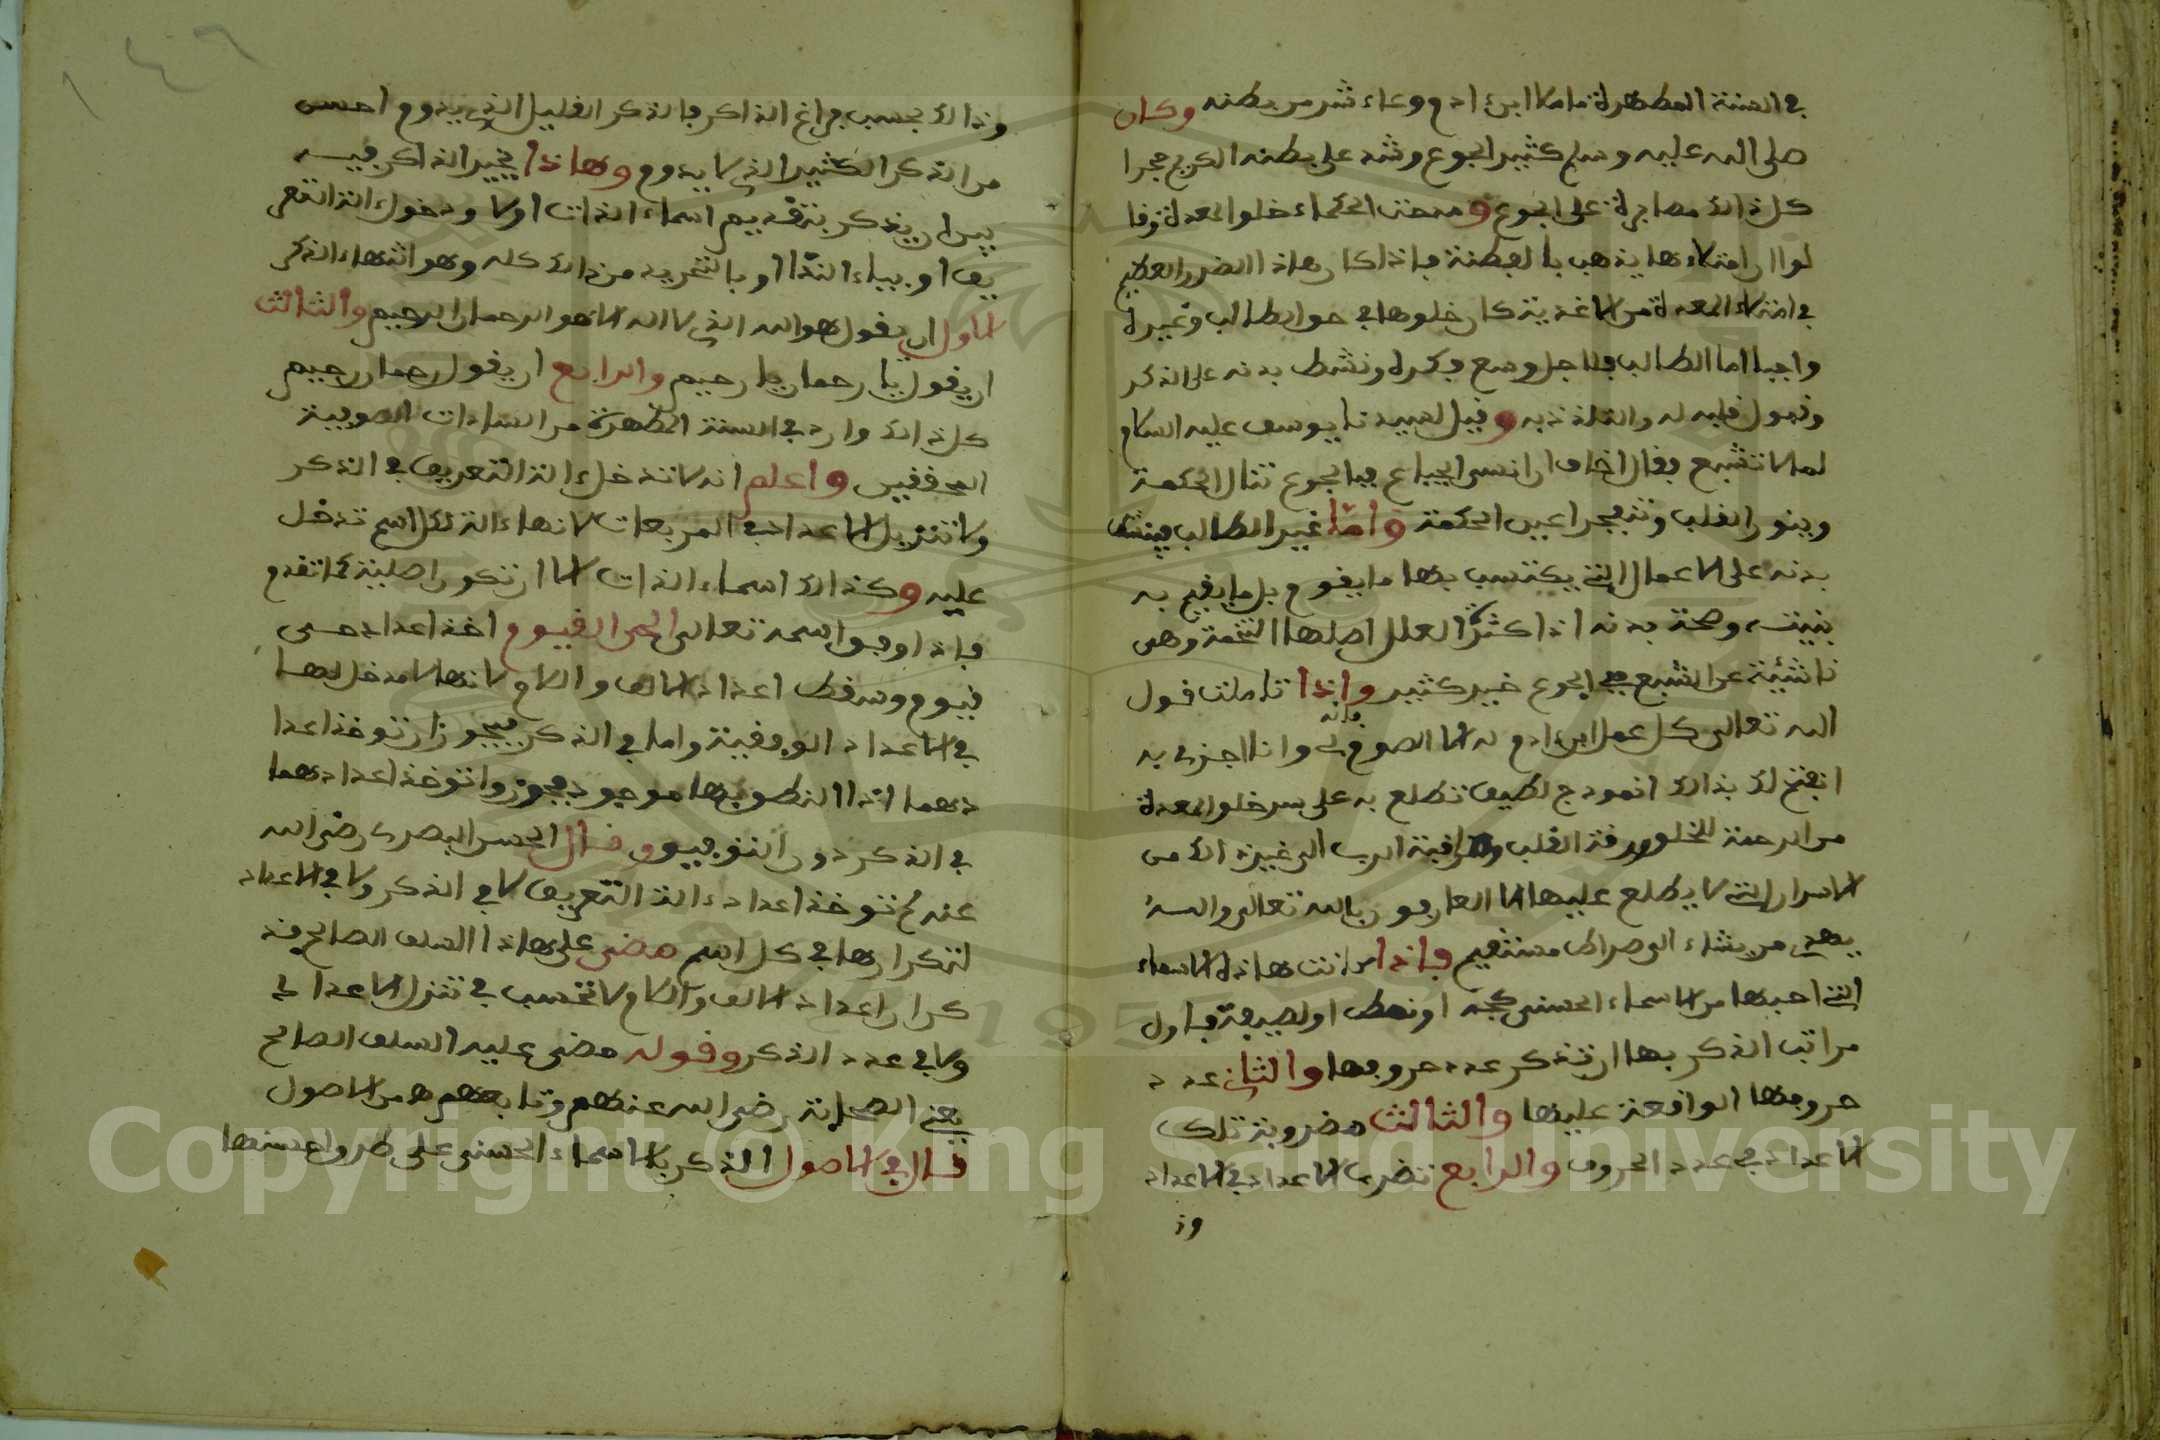 في السنة المطهرة ما ملا ابن ءادم وعاء شر من بطنه وكان
صلى الله عليه وسلم كثير الجوع وشد على بطنه الكريم حجرا
كل ذالك مصابرة على الجوع ومدحت الحكماء خلو المعدة وقا
لوا ان امتلاءها يذهب بالبطنة فاذا كان هاذا الضرر العظيم
في امتلاء المعدة من الاغذية كان خلوها في حق الطالب وغيره
واجبا اما الطالب فلاجل وسع فكره ونشط بدنه على الذكر
وقبول قلبه له والتلذذ به وقيل لسيدنا يوسف عليه السلام
لم لا تشبع فقال اخاف ان انسى الجياع فبالجوع تنال الحكمة
وينور القلب وتنفجر اعين الحكمة واما غير الطالب فينشط
بدنه على الاعمال التي يكتسب بها ما يقوم بل ما يقيم به
بنيته وصحة بدنه اذ اكثر العلل اصلها التخمة وهي
ناشئة عن الشبع ففي الجوع خير كثير واذا تاملت قول
الله تعالى كل عمل ابن ءادم له الا الصوم فانه لي وانا اجزي به
انفتح لك بذالك انموذج لطيف تطلع به على سر خلو المعدة
من الرحمة للخلق ورقة القلب ومراقبة الرب الى غير ذالك من
الاسرار التي لا يطلع عليها الا العارفون بالله تعالى والله
يهدي من يشاء الى صراط مستقيم فاذا مرانت هاذه الاسماء
التي احبها من الاسماء الحسنى كجه او نمط او لصيرفة فاول
مراتب الذكر بها ان تذكر عدد حروفها والثاني عدد
حروفها الواقعة عليها والثالث مضروبة تلك
الاعداد في عدد الحروف والرابع تضرب الاعداد في الاعداد
وذ
وذالك بحسب فراغ الذاكر فالذكر القليل الذي يدوم احسن
من الذكر الكثير الذي لا يدوم وهاذا يخير الذاكر فيه
بين ان يذكر بتقديم اسماء الذات اولا ودخول ءالة التعر
يف او بياء الندا او بالتجريد من ذالك كله وهو انتهاء الذكر
الاول ان يقول هو الله الذي لا اله الا هو الرحمان الرحيم والثالث
ان يقول يا رحمان يا رحيم والرابع ان يقول رحمان رحيم
كل ذالك وارد في السنة المطهرة من السادات الصوفية
المحققين واعلم انه لا تدخل ءالة التعريف في الذكر
ولا تنزيل الاعداد في المربعات لانها ءالة لكل اسم تدخل
عليه وكذالك اسماء الذات الا ان تكون اصلية كما تقدم
فاذا وفق اسمه تعالى الحي القيوم اخذ اعداد حي
قيوم وسقط اعداد الالف واللام لانها لا مدخل لها
في الاعداد الوفقية واما في الذكر فيجوز ان توخذ اعدا
دهما اذ النطق بها موجود فيجوز ان توخذ اعدادهما
في الذكر دون التوفيق وقال الحسن البصري رضي الله
عنه لم توخذ اعداد ءالة التعريف لا في الذكر ولا في الاعداد
لتكرارها في كل اسم مضى على هاذا السلف الصالح فتد
كرار اعداد الالف واللام لا تحسب في تنزل الاعداد
ولا في عدد الذكر وقوله مضى عليه السلف الصالح
يعني الصحابة رضي الله عنهم وتابعهم من الاصول
قال في الاصول الذكر بالاسماء الحسنى على طرق احسنها